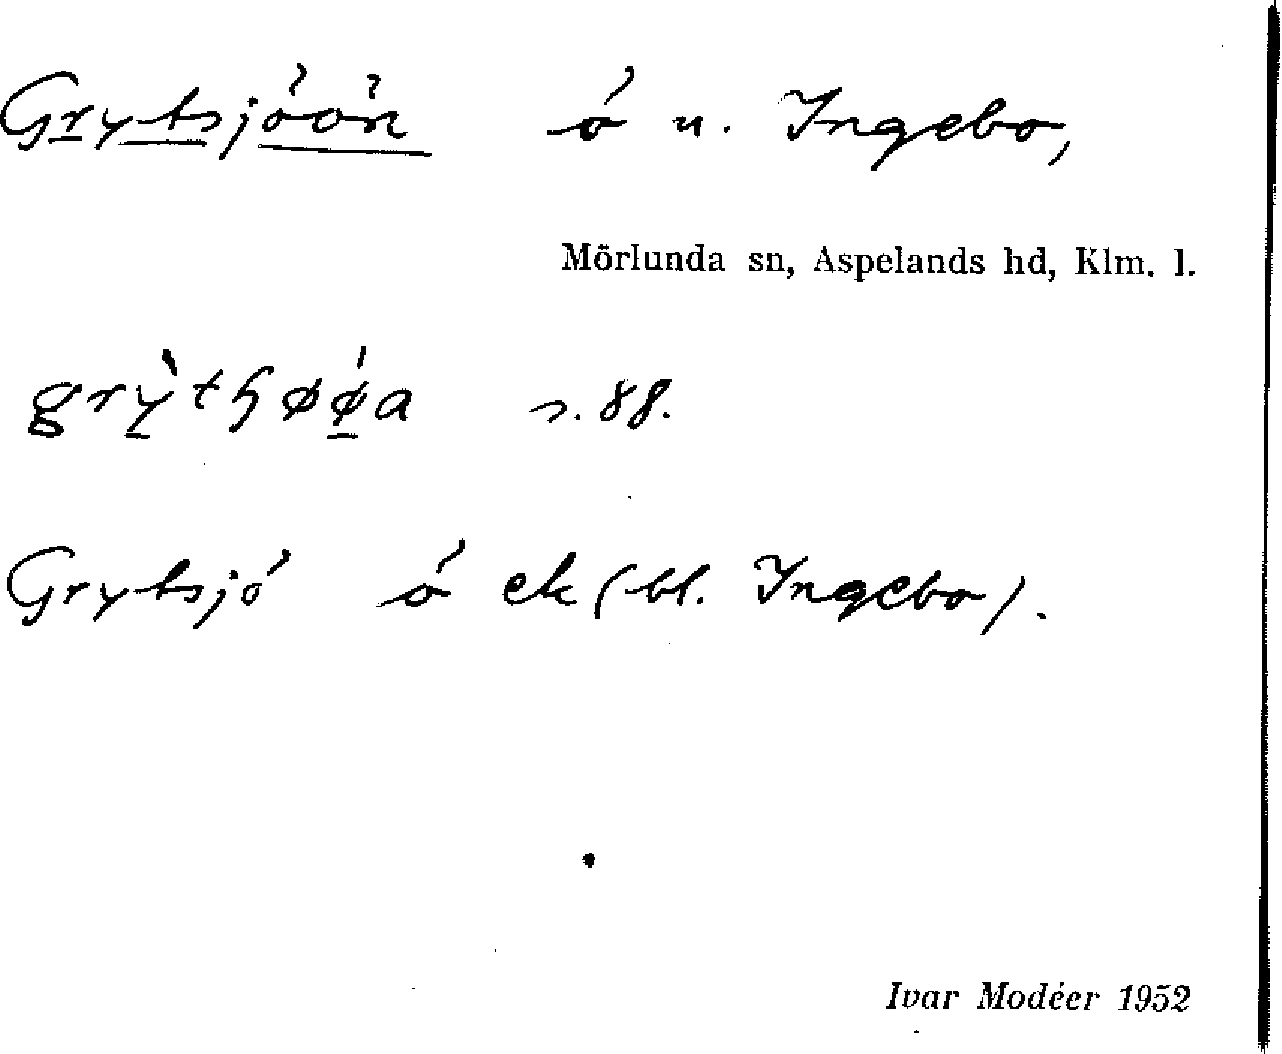 Grytsjöön ö u. Ingebo,
Mörlunda sn, Aspelands hd, Klm. l.
grỳtɧøǿa s. 88.
Grytsjö ö ek (bl. Ingebo).
Ivar Modéer 1952